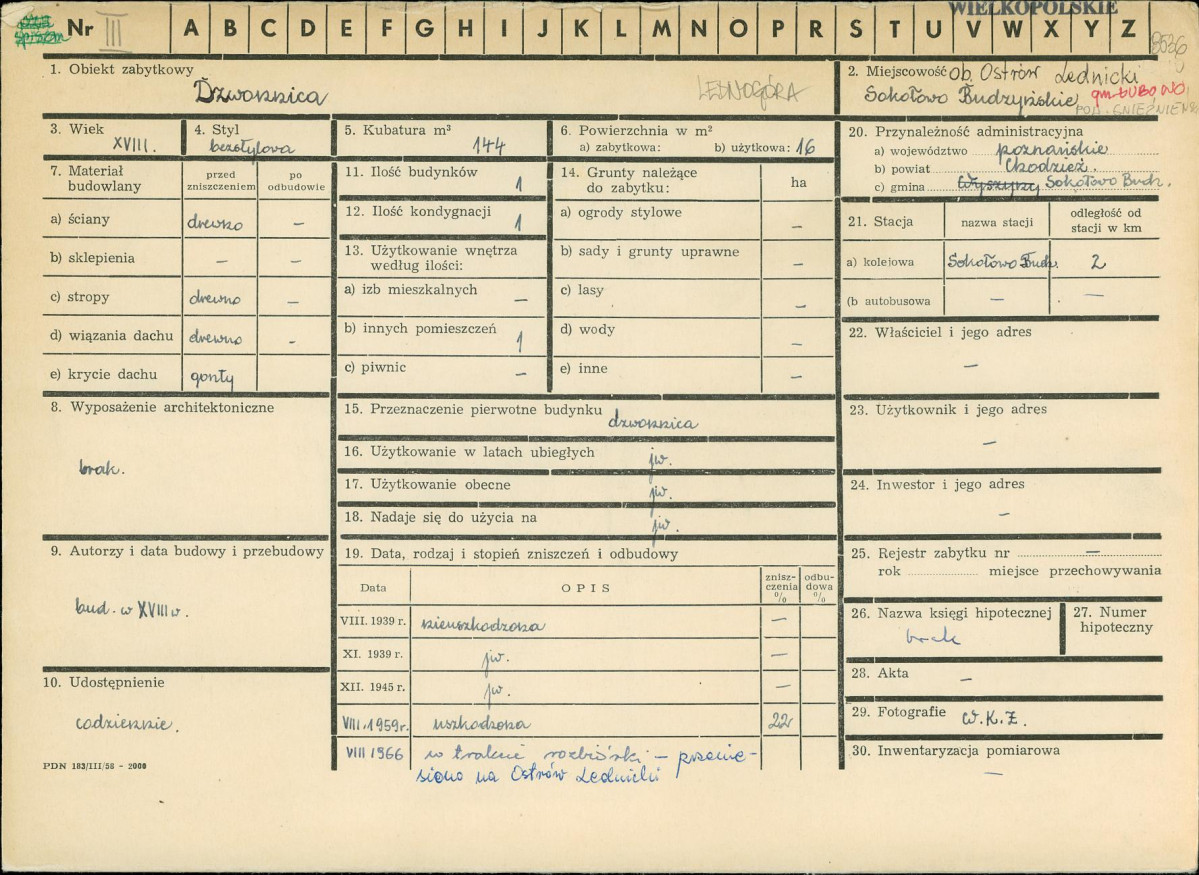 WIELKOPOLSKIE
Nr III A B C D E F G H I J K L M N O P R S T U V W X Y Z
8536
1. Obiekt zabytkowy
Dzwonnica
LEDNOGÓRA
2. Miejscowość ob. Ostrów Lednicki
Sokołowo Budzyńskie, gm. ŁUBOWO,
POW. GNIEŹNIEŃSKI
3. Wiek
XVIII.
4. Styl
bezstylowa
5. Kubatura m³
144
6. Powierzchnia w m²
a) zabytkowa: b) użytkowa: 16
7. Materiał budowlany
przed zniszczeniem
po odbudowie
a) ściany drewno —
b) sklepienia — —
c) stropy drewno —
d) wiązania dachu drewno -
e) krycie dachu gonty
8. Wyposażenie architektoniczne
brak.
9. Autorzy i data budowy i przebudowy
bud. w XVIII w.
10. Udostępnienie
codziennie.
PDN 183/III/58 - 2000
11. Ilość budynków 1
12. Ilość kondygnacji 1
13. Użytkowanie wnętrza
według ilości:
a) izb mieszkalnych —
b) innych pomieszczeń 1
c) piwnic —
14. Grunty należące
do zabytku:
ha
a) ogrody stylowe —
b) sady i grunty uprawne —
c) lasy —
d) wody —
e) inne —
15. Przeznaczenie pierwotne budynku dzwonnica
16. Użytkowanie w latach ubiegłych jw.
17. Użytkowanie obecne jw.
18. Nadaje się do użycia na jw.
19. Data, rodzaj i stopień zniszczeń i odbudowy
Data OPIS znisz-czenia % odbu-dowa %
VIII. 1939 r. nieuszkodzona —
XI. 1939 r. jw. —
XII. 1945 r. jw. —
VIII. 1959 r. uszkodzona 22
VIII 1966 w trakcie rozbiórki — przenie-
siona na Ostrów Lednicki
20. Przynależność administracyjna
a) województwo poznańskie
b) powiat Chodzież.
c) gmina Wyszyny Sokołowo Budz.
21. Stacja nazwa stacji odległość od stacji w km
a) kolejowa Sokołowo Budz. 2
(b autobusowa — —
22. Właściciel i jego adres
—
23. Użytkownik i jego adres
—
24. Inwestor i jego adres
—
25. Rejestr zabytku nr —
rok miejsce przechowywania
26. Nazwa księgi hipotecznej
brak
27. Numer
hipoteczny
28. Akta —
29. Fotografie W.K.Z.
30. Inwentaryzacja pomiarowa
—